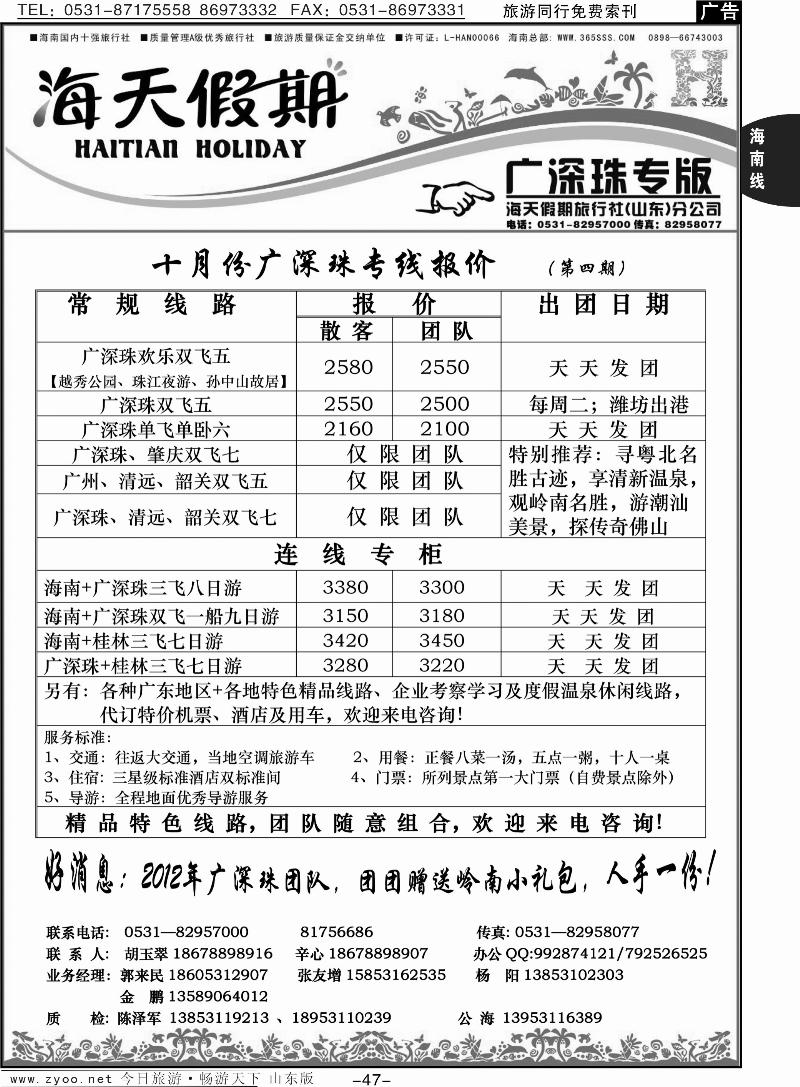 TEL: 0531-87175558 86973332 FAX: 0531-86973331 旅游同行免费索刊 广告
■海南国内十强旅行社 ■质量管理A级优秀旅行社 ■旅游质量保证金交纳单位 ■许可证: L-HAN00066 海南总部: WWW.365SSS.COM 0898—66743003
海天假期
HAITIAN HOLIDAY
H
海南线
广深珠专版
海天假期旅行社(山东)分公司
电话: 0531-82957000 传真: 82958077
十月份广深珠专线报价 (第四期)
常规线路 报价 出团日期
散客 团队
广深珠欢乐双飞五
【越秀公园、珠江夜游、孙中山故居】 2580 2550 天天发团
广深珠双飞五 2550 2500 每周二; 潍坊出港
广深珠单飞单卧六 2160 2100 天天发团
广深珠、肇庆双飞七 仅限团队
广州、清远、韶关双飞五 仅限团队
广深珠、清远、韶关双飞七 仅限团队
特别推荐: 寻粤北名
胜古迹, 享清新温泉,
观岭南名胜, 游潮汕
美景, 探传奇佛山
连线专柜
海南+广深珠三飞八日游 3380 3300 天天发团
海南+广深珠双飞一船九日游 3150 3180 天天发团
海南+桂林三飞七日游 3420 3450 天天发团
广深珠+桂林三飞七日游 3280 3220 天天发团
另有: 各种广东地区+各地特色精品线路、企业考察学习及度假温泉休闲线路,
代订特价机票、酒店及用车, 欢迎来电咨询!
服务标准:
1、交通: 往返大交通, 当地空调旅游车 2、用餐: 正餐八菜一汤, 五点一粥, 十人一桌
3、住宿: 三星级标准酒店双标准间 4、门票: 所列景点第一大门票 (自费景点除外)
5、导游: 全程地面优秀导游服务
精品特色线路, 团队随意组合, 欢迎来电咨询!
好消息: 2012年广深珠团队, 团团赠送岭南小礼包, 人手一份!
联系电话: 0531—82957000 81756686 传真: 0531—82958077
联系人: 胡玉翠 18678898916 辛心 18678898907 办公QQ:992874121/792526525
业务经理: 郭来民 18605312907 张友增 15853162535 杨阳 13853102303
金鹏 13589064012
质检: 陈泽军 13853119213 、18953110239 公海 13953116389
www.zyoo.net 今日旅游·畅游天下 山东版 -47-